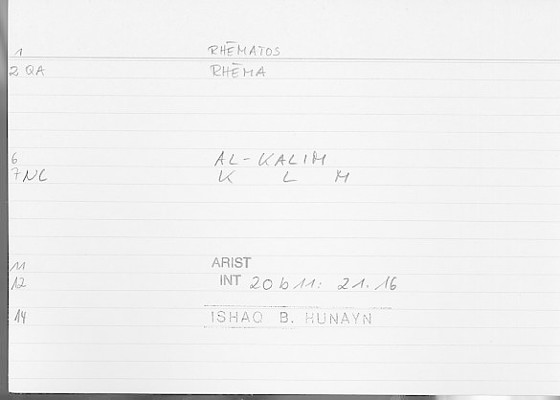 1 RHĒMATOS
2 QA RHĒMA
6 AL-KALIM
7 NC K L M
11 ARIST
12 INT 20b11: 21.16
14 ISHAQ B. HUNAYN